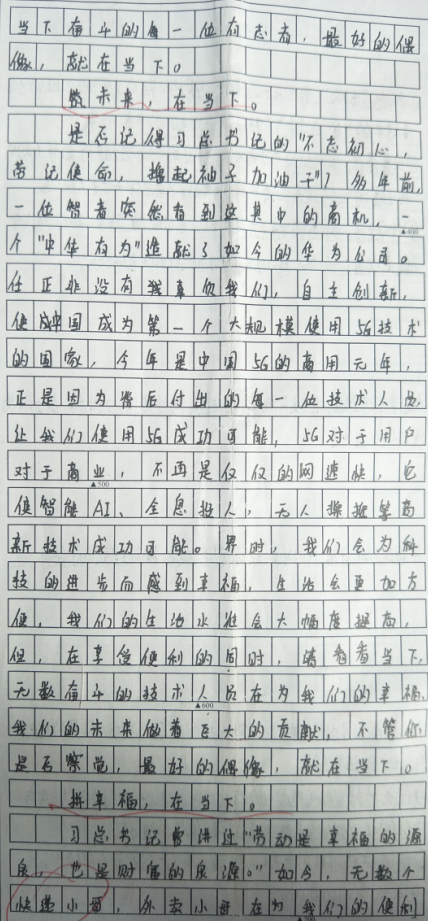 当下奋斗的每一位有志者，最好的偶
像，就在当下。
做未来，在当下。
是否记得习总书记的"不忘初心，
劳记使命，撸起袖子加油干"？多年前，
一位智者突然看到这其中的商机，一
▲400
个"中华有为"造就了如今的华为公司。
任正非没有辜负我们，自主创新，
使中国成为第一个大规模使用5G技术
的国家，今年是中国5G的商用元年，
正是因为背后付出的每一位技术人员，
让我们使用5G成功可能，5G对于用户
对于商业，不再是仅仅的网速快，它
▲500
使智能AI、全息投人，无人操控等高
新技术成功可能。界时，我们会为科
技的进步而感到幸福，生活会更加方
便，我们的生活水准会大幅度提高，
但，在享受便利的同时，请看看当下，
无数奋斗的技术人员在为我们的幸福，
▲600
我们的未来做着巨大的贡献，不管你
是否察觉，最好的偶像，就在当下。
拼幸福，在当下。
习总书记曾讲过"劳动是幸福的源
泉，也是财富的泉源。"如今，无数个
快递小哥，外卖小哥在为我们的便利